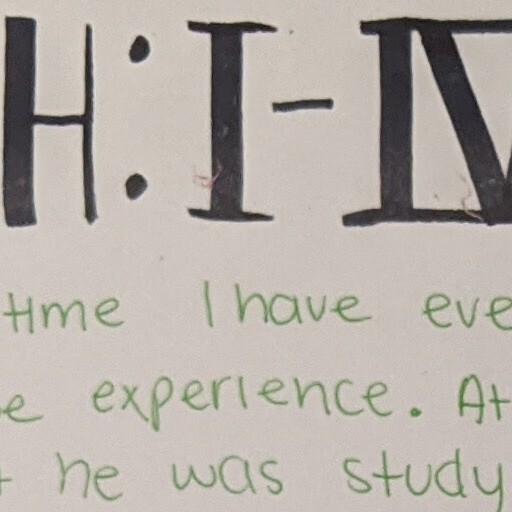 H: I-IV
time I have eve
e experience. At
t he was study